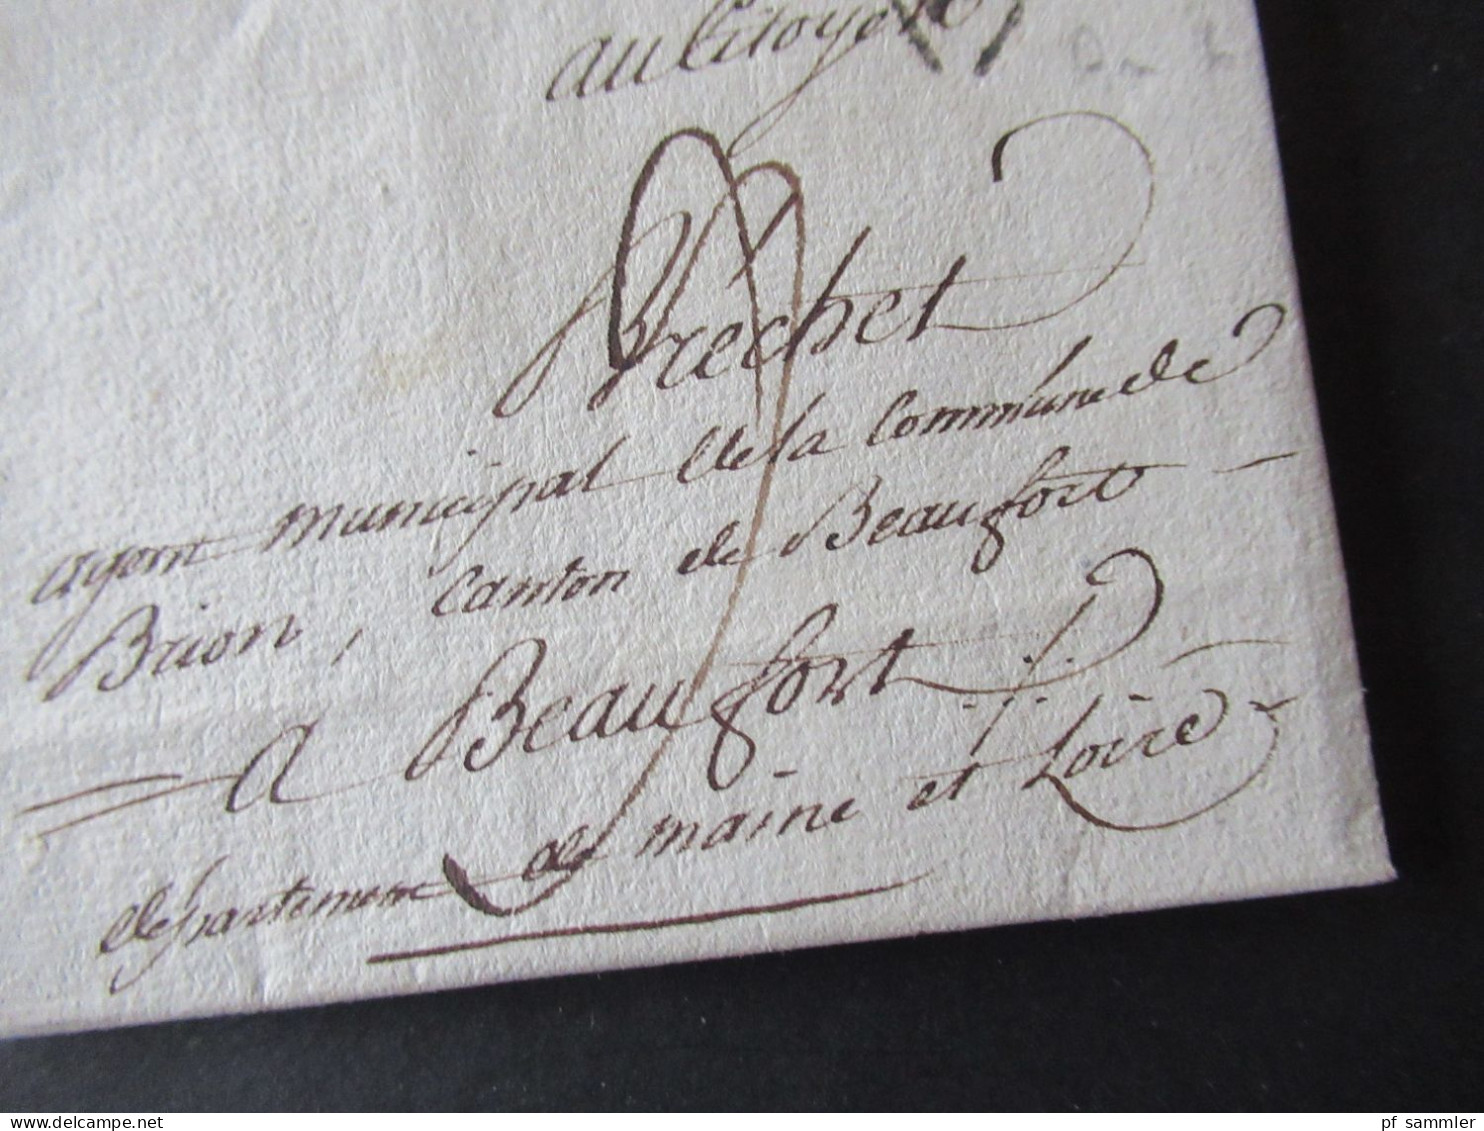 au Citoyen
Brechet
agent municipal de la Commune de
Brion, Canton de Beaufort
a Beaufort
département de maine et Loire
delcampe.net
pf sammler